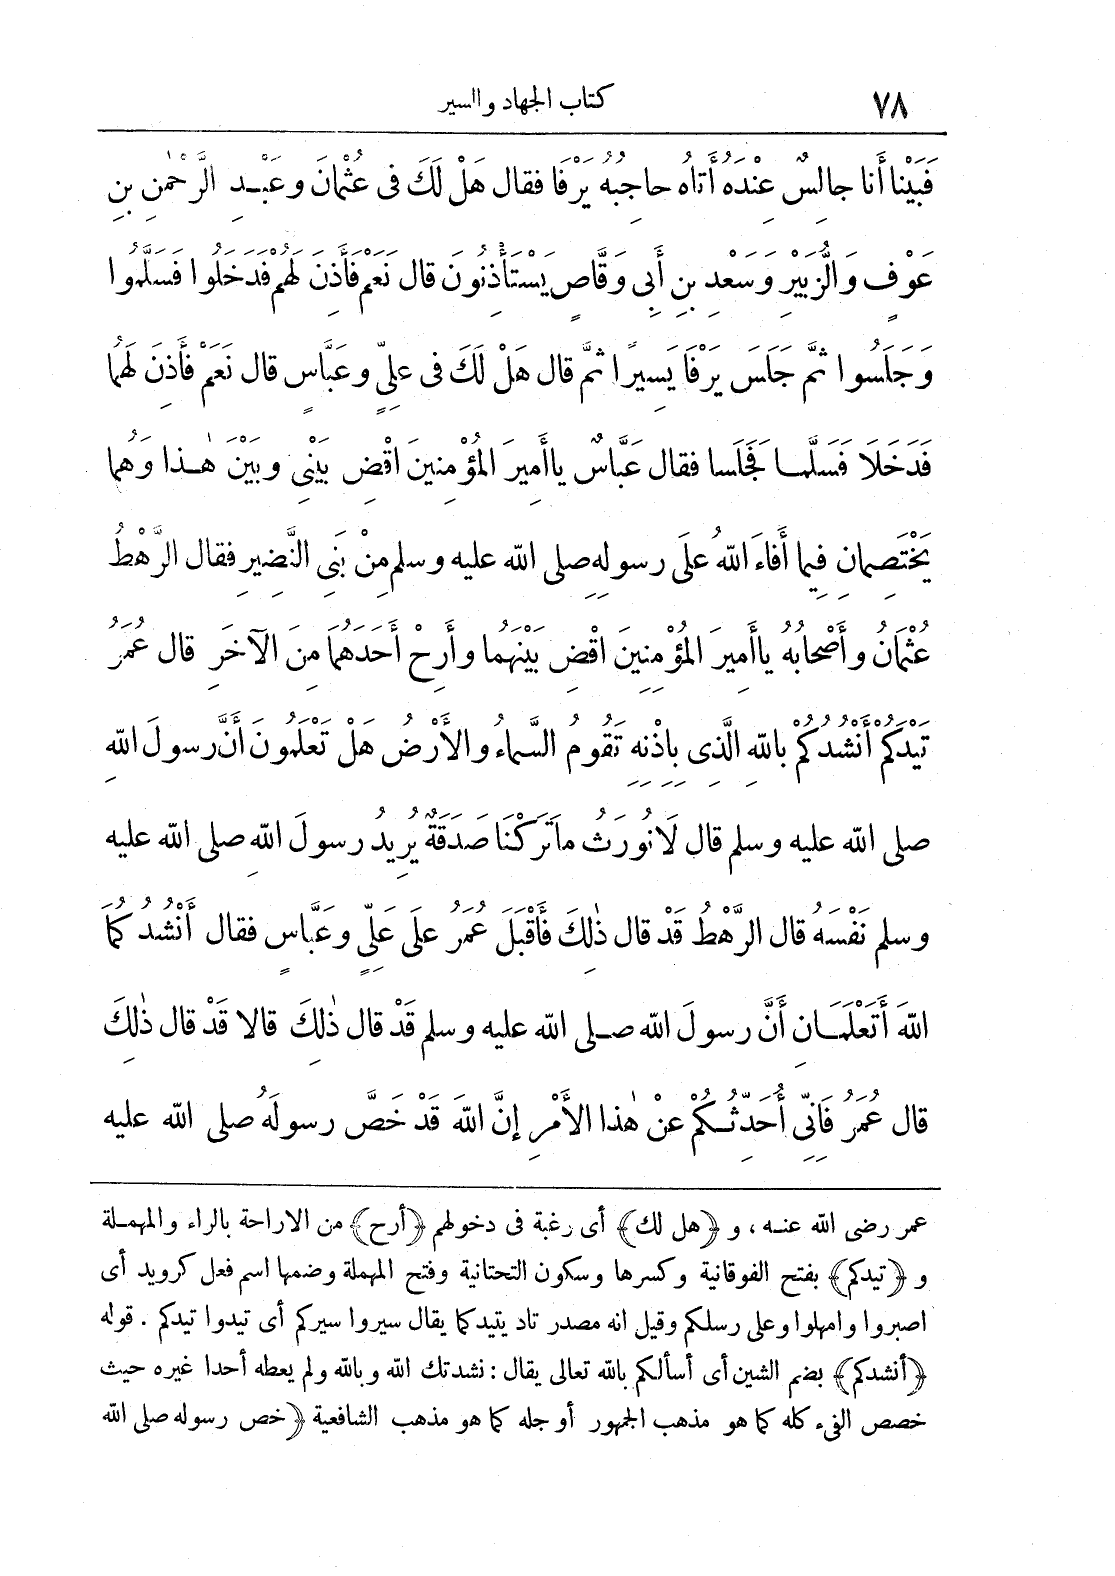 ٧٨ كتاب الجهاد والسير
فَبَيْنَا أَنا جالِسٌ عِنْدَهُ أَتاهُ حاجِبُهُ يَرْفَا فقال هَلْ لَكَ فى عُثْمانَ وعَبْـدِ الرَّحْمٰنِ بنِ
عَوْفٍ وَالزُّبَيْرِ وَسَعْدِ بنِ أَبِى وَقَّاصٍ يَسْتَأْذِنُونَ قال نَعَمْ فَأَذِنَ لَهُمْ فَدَخَلُوا فَسَلَّمُوا
وَجَلَسُوا ثُمَّ جَلَسَ يَرْفَا يَسِيرًا ثُمَّ قال هَلْ لَكَ فى علِىٍّ وعَبَّاسٍ قال نَعَمْ فَأَذِنَ لَهُما
فَدَخَلَا فَسَلَّمـا فَجَلَسا فقال عَبَّاسٌ ياأَمِيرَ المُؤْمِنينَ اقْضِ بَيْنِى وبَيْنَ هٰـذا وَهُما
يَخْتَصِمانِ فِيما أَفاءَ اللهُ علَى رسولِهِ صلى الله عليه وسلم مِنْ بَنِى النَّضِيرِ فقال الرَّهْطُ
عُثْمَانُ وأَصْحابُهُ ياأَمِيرَ المُؤْمِنِينَ اقْضِ بَيْنَهُما وأَرِحْ أَحَدَهُمَا مِنَ الآخَرِ قال عُمَرُ
تَيْدَكُمْ أَنْشُدُكُمْ باللهِ الَّذِى بِإِذْنِهِ تَقُومُ السَّماءُ والأَرْضُ هَلْ تَعْلَمُونَ أَنَّ رسولَ اللهِ
صلى الله عليه وسلم قال لَا نُورَثُ ماتَرَكْنَا صَدَقَةٌ يُرِيدُ رسولَ اللهِ صلى الله عليه
وسلم نَفْسَهُ قال الرَّهْطُ قَدْ قال ذٰلِكَ فَأَقْبَلَ عُمَرُ علَى عَلِىٍّ وعَبَّاسٍ فقال أَنْشُدُكُما
اللهَ أَتَعْلَمَـانِ أَنَّ رسولَ الله صـلى الله عليه وسلم قَدْ قال ذٰلِكَ قالا قَدْ قال ذٰلِكَ
قال عُمَرُ فَانِّى أُحَدِّثُـكُمْ عنْ هٰذا الأَمْرِ إنَّ اللهَ قَدْ خَصَّ رسولَهُ صلى الله عليه
عمر رضى الله عنـه ، و ﴿هل لك﴾ أى رغبة فى دخولهم ﴿أرح﴾ من الاراحة بالراء والمهمـلة
و ﴿تيدكم﴾ بفتح الفوقانية وكسرها وسكون التحتانية وفتح المهملة وضمها اسم فعل كرويد أى
اصبروا وامهلوا وعلى رسلكم وقيل انه مصدر تاد يتيد كما يقال سيروا سيركم أى تيدوا تيدكم . قوله
﴿أنشدكم﴾ بضم الشين أى أسألكم بالله تعالى يقال : نشدتك الله وبالله ولم يعطه أحدا غيره حيث
خصص الفىء كله كما هو مذهب الجمهور أوجله كما هو مذهب الشافعية ﴿خص رسوله صلى الله